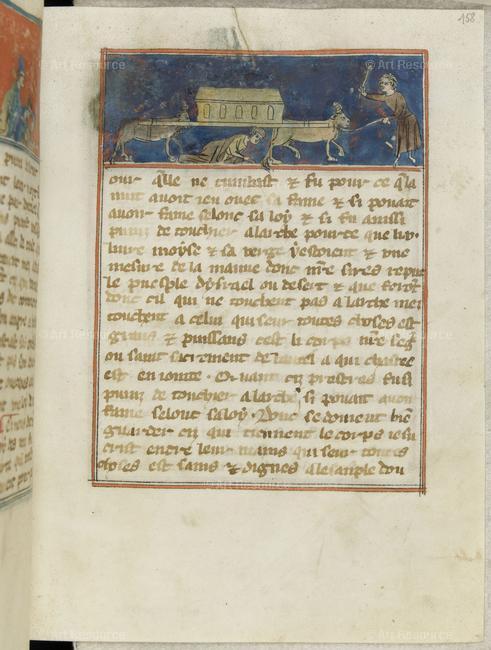 158
ouir qͥlle ne tumbast & fu pour ce q̄ la
nuit auoit ieu ouec sa fame & si pouait
auoir fame selonc sa loy & si fu aussi
puniz de touchier alarche pource que
liure moyse & sa uerge yestoient & une
mesure de la manne donc nr̄e sires reput
le pueple disrael ou desert & que feront
donc cil qui ne touchent pas alarche mes
touchent a celui qui seur toutes choses est
grans & puissans cest li corps nr̄e seigr̄
ou saint sacrement de lautel a qui chastee
est en iointe. Quant cis prestres fu si
puniz de touchier alarche si pouait auoir
fame selonc sa loy. Donc se doiuent biē
guarder cil qui tiennent le corps iesu
crist entre leur mains qui seur toutes
choses est sains & dignes alesample dou
© Art Resource